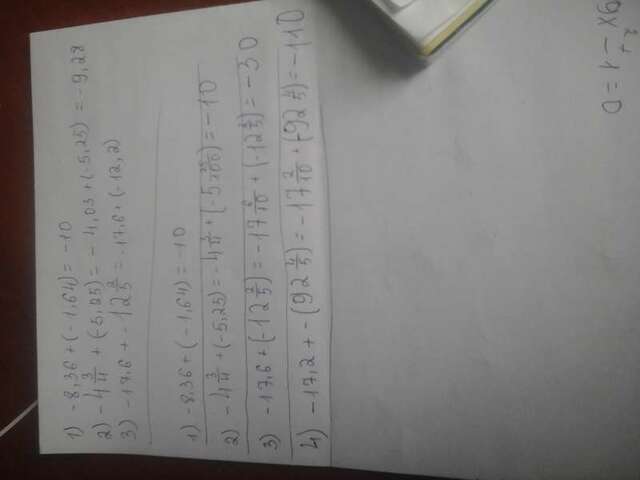 1) -8,36+(-1,64)=-10
2) -4 3/4 + (-5,25) = -4,03+(-5,25) = -9,28
3) -17,6 + -12 2/5 = -17,6 + (-12,2)
1) -8,36+(-1,64)=-10
2) -4 3/4 +(-5,25)=-4 3/4 +(-5 25/100)=-10
3) -17,6+(-12 2/5)=-17 6/10 +(-12 2/5)=-30
4) -17,2+-(92 4/5)=-17 2/10 +(-92 4/5)=-110
x - 1 = 0